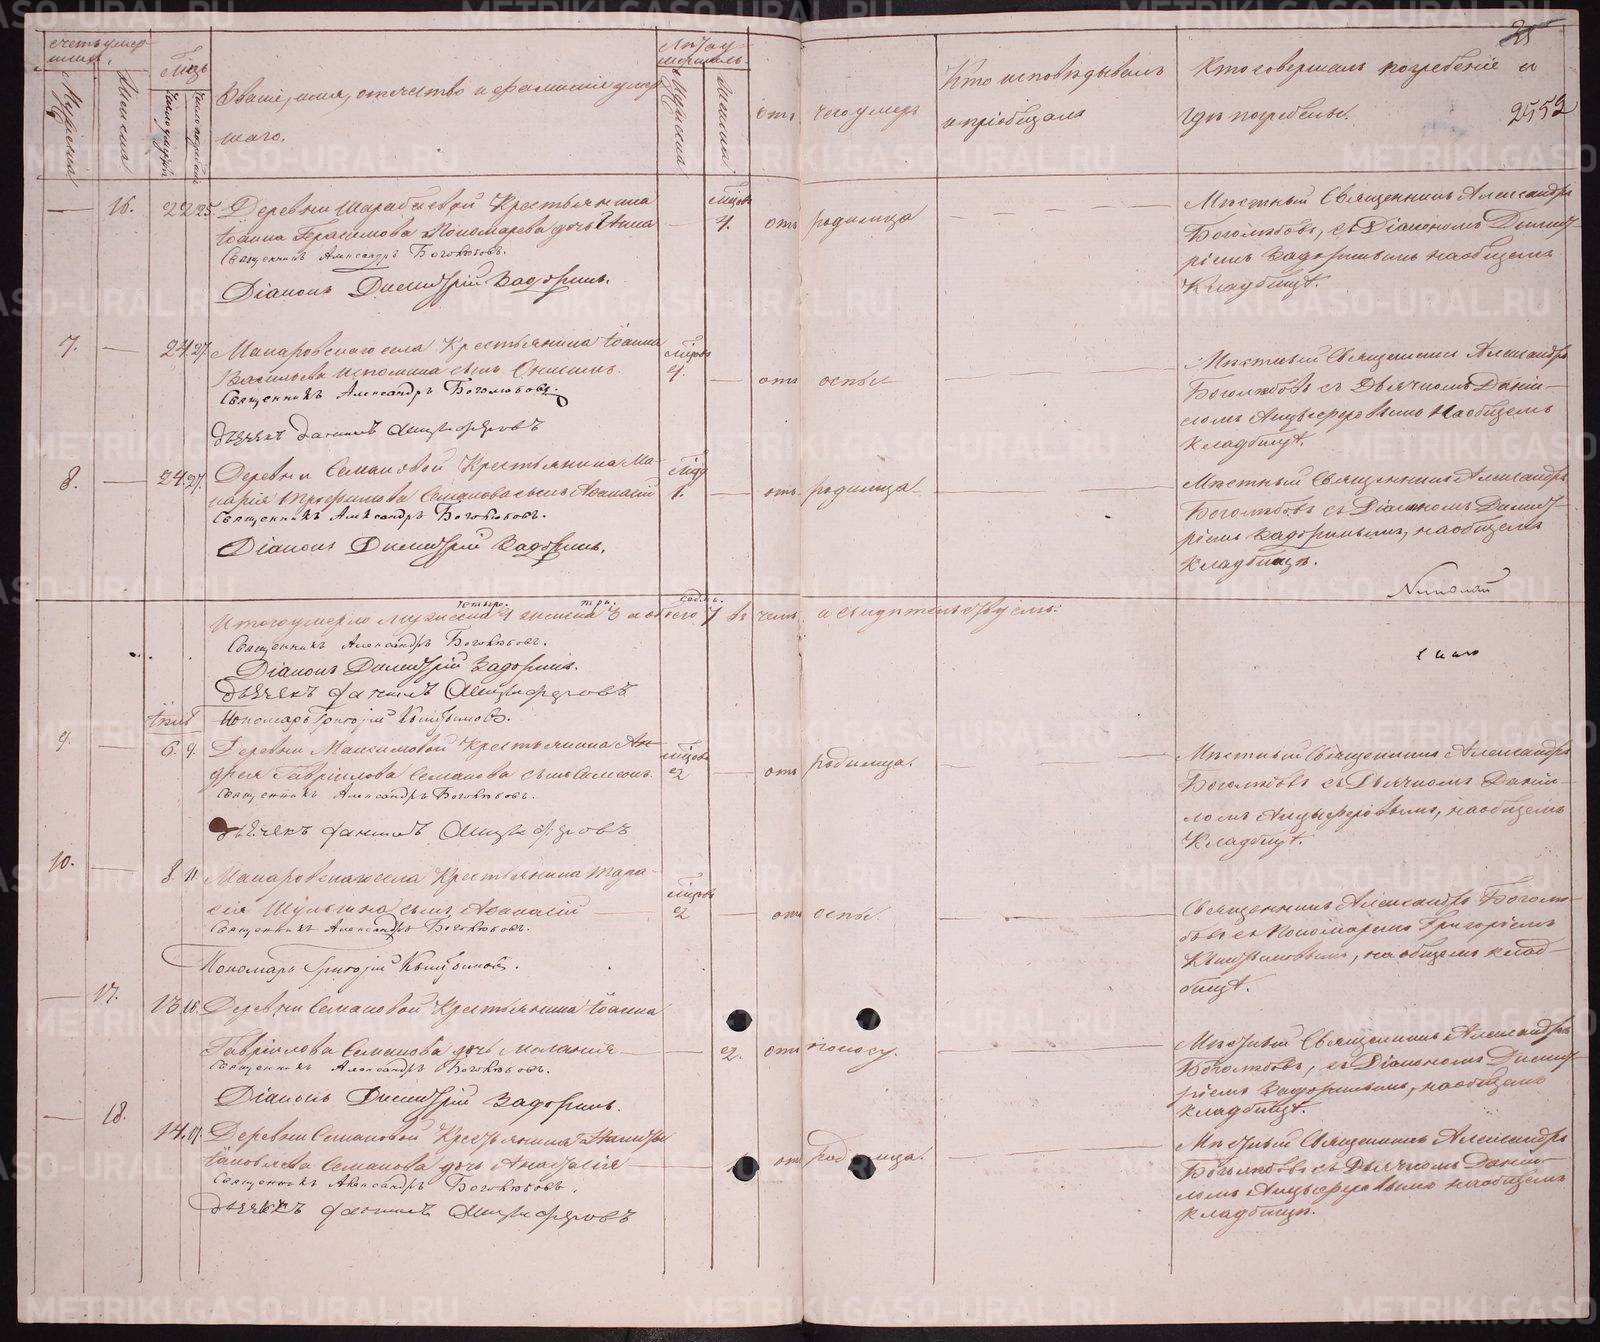 счетъ умер-
шихъ.
Мужеска
Женска
Мѣсяцъ
Число смерти
Число погребенія
Званіе, имя, отечество и фамилія умер
шаго.
Лѣта у-
мершаго
Мужеска
Женска
отъ чего умеръ
Кто исповѣдывалъ
и пріобщалъ
Кто совершалъ погребеніе и
гдѣ погребены.
25
2552
16. 22 25. Деревни Шарабаевой Крестьянина
Іоанна Герасимова Пономарева дочь Анна
Священникъ Александръ Боголюбовъ.
Діаконъ Димитрій Задоринъ.
4. отъ родимца
Мѣстный Священникъ Александръ
Боголюбовъ, съ Діакономъ Димит-
ріемъ Задоринымъ на общемъ
Кладбищѣ.
7. 24 27. Макаровскаго села Крестьянина Іоанна
Васильева сынъ Онисимъ.
Священникъ Александръ Боголюбовъ.
Дьячекъ Даніилъ Анцыферовъ
4. отъ оспы
Мѣстный Священникъ Александръ
Боголюбовъ съ Дьячкомъ Даніи-
ломъ Анцыферовымъ на общемъ
Кладбищѣ.
8. 24. 27. Деревни Семановой Крестьянина Ма-
карія Трофимова Семанова сынъ Аѳанасій
Священникъ Александръ Боголюбовъ.
Діаконъ Димитрій Задоринъ.
1. отъ родимца
Мѣстный Священникъ Александръ
Боголюбовъ съ Діакономъ Димит-
ріемъ Задоринымъ, на общемъ
Кладбищѣ.
Николай
четыре. три. седмь.
Итого умерло мужеска 4 женска 3 а обоего 7 въ чемъ и свидѣтельствуемъ:
Священникъ Александръ Боголюбовъ.
Діаконъ Димитрій Задоринъ.
Дьячекъ Даніилъ Анцыферовъ
Пономарь Григорій Кыштымовъ.
Іюль
9. 6. 9. Деревни Максимовой Крестьянина Ан-
дрея Гавріилова Семанова сынъ Самсонъ.
Священникъ Александръ Боголюбовъ.
Дьячекъ Даніилъ Анцыферовъ
2 отъ родимца.
Мѣстный Священникъ Александръ
Боголюбовъ съ Дьячкомъ Даніи-
ломъ Анцыферовымъ, на общемъ
Кладбищѣ.
10. 8. 11. Макаровскаго села Крестьянина Тара-
сія Шульгина сынъ Аѳанасій
Священникъ Александръ Боголюбовъ.
Пономарь Григорій Кыштымовъ.
2 отъ оспы.
Священникъ Александръ Боголю-
бовъ съ Пономаремъ Григоріемъ
Кыштымовымъ, на общемъ клад-
бищѣ.
17. 13 16. Деревни Семановой Крестьянина Іоанна
Гавріилова Семанова дочь Меланія
Священникъ Александръ Боголюбовъ.
Діаконъ Димитрій Задоринъ.
2. отъ поносу.
Мѣстный Священникъ Александръ
Боголюбовъ, съ Діакономъ Димит-
ріемъ Задоринымъ, на общемъ
Кладбищѣ.
18. 14. 17. Деревни Семановой Крестьянина
Іаковлева Семанова дочь Анастасія
Священникъ Александръ Боголюбовъ.
Дьячекъ Даніилъ Анцыферовъ
отъ родимца.
Мѣстный Священникъ Александръ
Боголюбовъ съ Дьячкомъ Даніи-
ломъ Анцыферовымъ на общемъ
Кладбищѣ.
METRIKI.GASO-URAL.RU